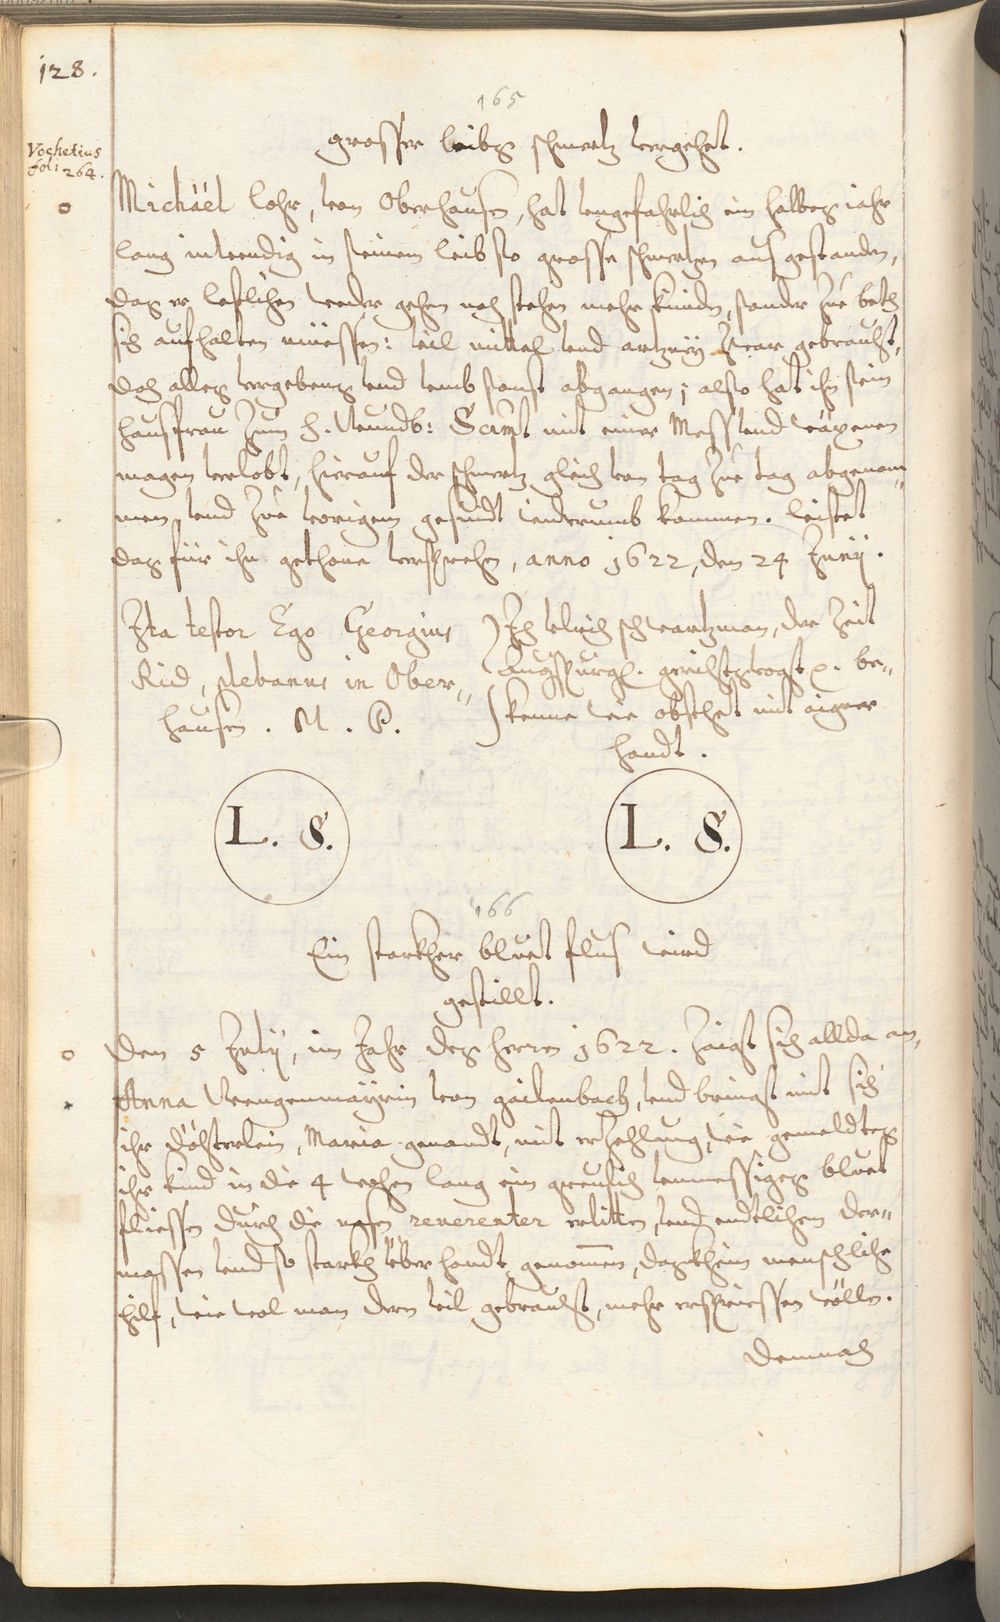 128.
165
grosser leibs schmertz vergehet.
Vochetius
fol: 264.
Michäel Lohr, von Oberhausen, hat vngefahrlich ein halbes iahr
lang inwendig in seinem leib so grosse schmertzen aus gestanden,
das er letslichen weder gehen noch stehen mehr kinden, sonder zue beth
sich aufhalten müessen: vil mittel vnd artzney zwar gebraucht,
doch alles vergebens vnd vmb sonst abgangen; also hat ihn sein
hausfrau zum h. Wundb: Sacrament mit einer Mess vnd wäxenen
magen verlobt, hierauf der schmertz gleich von tag zue tag abgenom„
men, vnd zue vorigem gesundt widerumb kommen. leistet
das für ihn gethone versprechen, anno 1622, den 24 Junij.
Ita testor Ego Georgius
Rid, plebanus in Ober„
hausen. M. P.
Ich Vlrich schwartzman, der Zeit
Augspurg. gerichtsvogt &. be„
kenne wie obsthet mit aigner
handt.
L. S.
L. S.
166
Ein starkher bluet flus wird
gestillt.
Den 5 Julij, im Jahr des herren 1622. Zaigt sich allda an,
Anna Wengenmayrin von gailenbach, vnd bringt mit sich
ihr döchterlein, Maria genandt, mit erzehlung, wie gemeldtes
ihr kind in die 4 wochen lang ein greulich vnmessiges bluet
fliessen durch die nasen reuerenter erlitten, vnd endtlichen der„
massen vnd so starkh über handt genommen, das khein menschliche
hilf, wie wol man deren vil gebraucht, mehr erspriessen wölle.
Demnach